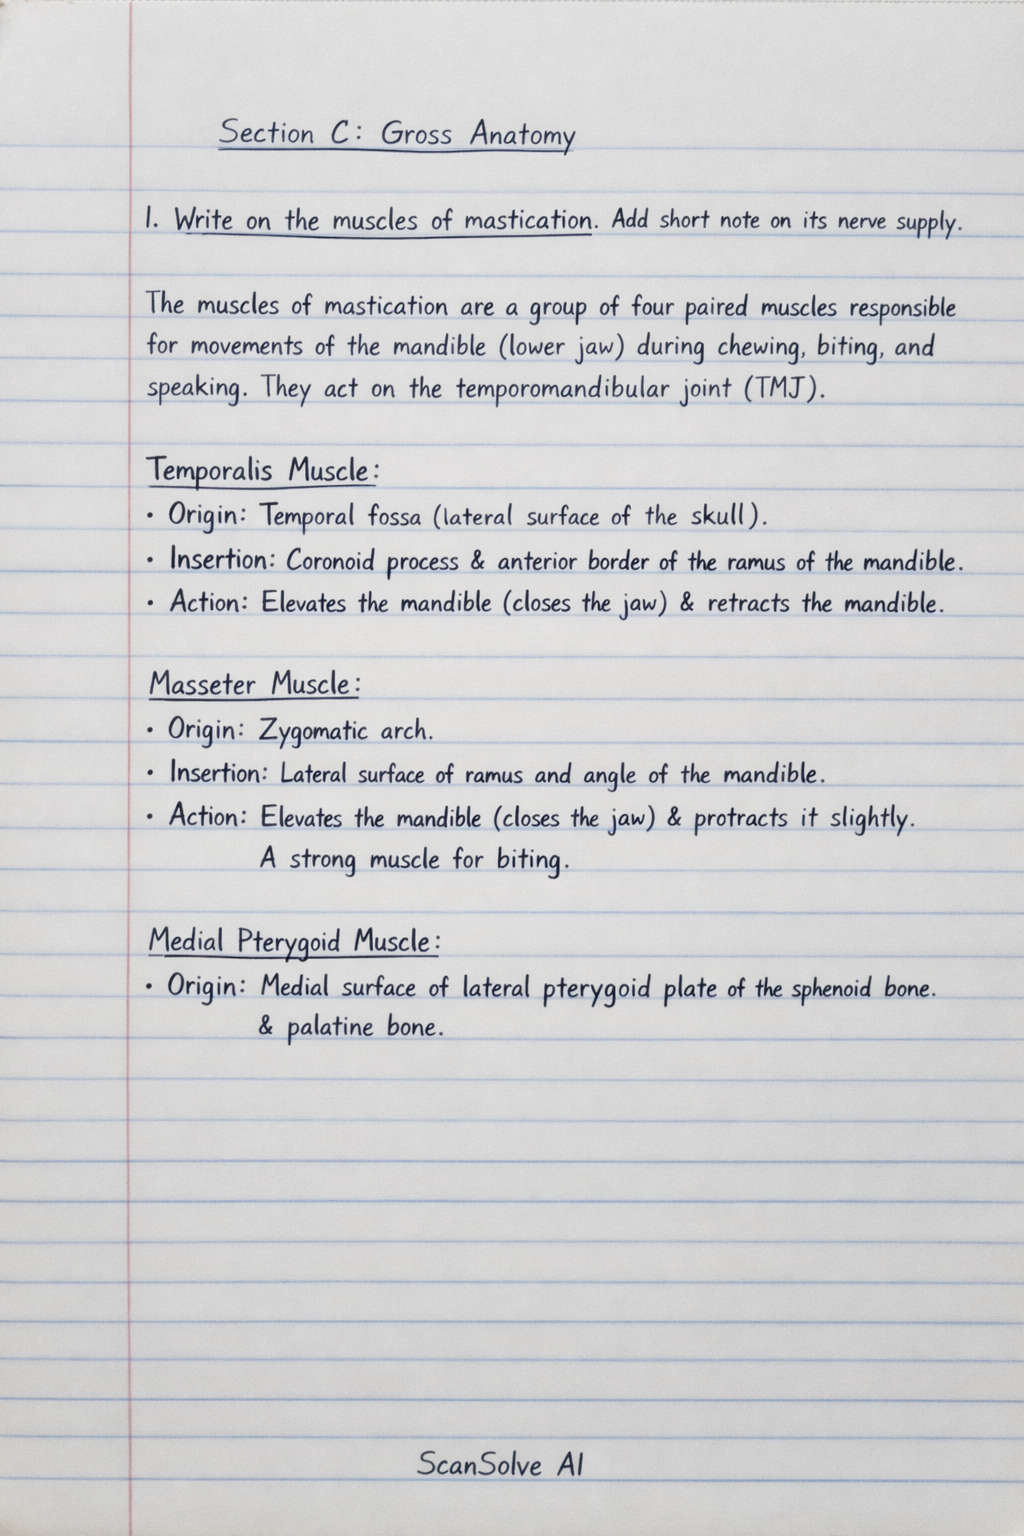 Section C: Gross Anatomy
1. Write on the muscles of mastication. Add short note on its nerve supply.
The muscles of mastication are a group of four paired muscles responsible
for movements of the mandible (lower jaw) during chewing, biting, and
speaking. They act on the temporomandibular joint (TMJ).
Temporalis Muscle:
• Origin: Temporal fossa (lateral surface of the skull).
• Insertion: Coronoid process & anterior border of the ramus of the mandible.
• Action: Elevates the mandible (closes the jaw) & retracts the mandible.
Masseter Muscle:
• Origin: Zygomatic arch.
• Insertion: Lateral surface of ramus and angle of the mandible.
• Action: Elevates the mandible (closes the jaw) & protracts it slightly.
A strong muscle for biting.
Medial Pterygoid Muscle:
• Origin: Medial surface of lateral pterygoid plate of the sphenoid bone.
& palatine bone.
ScanSolve AI